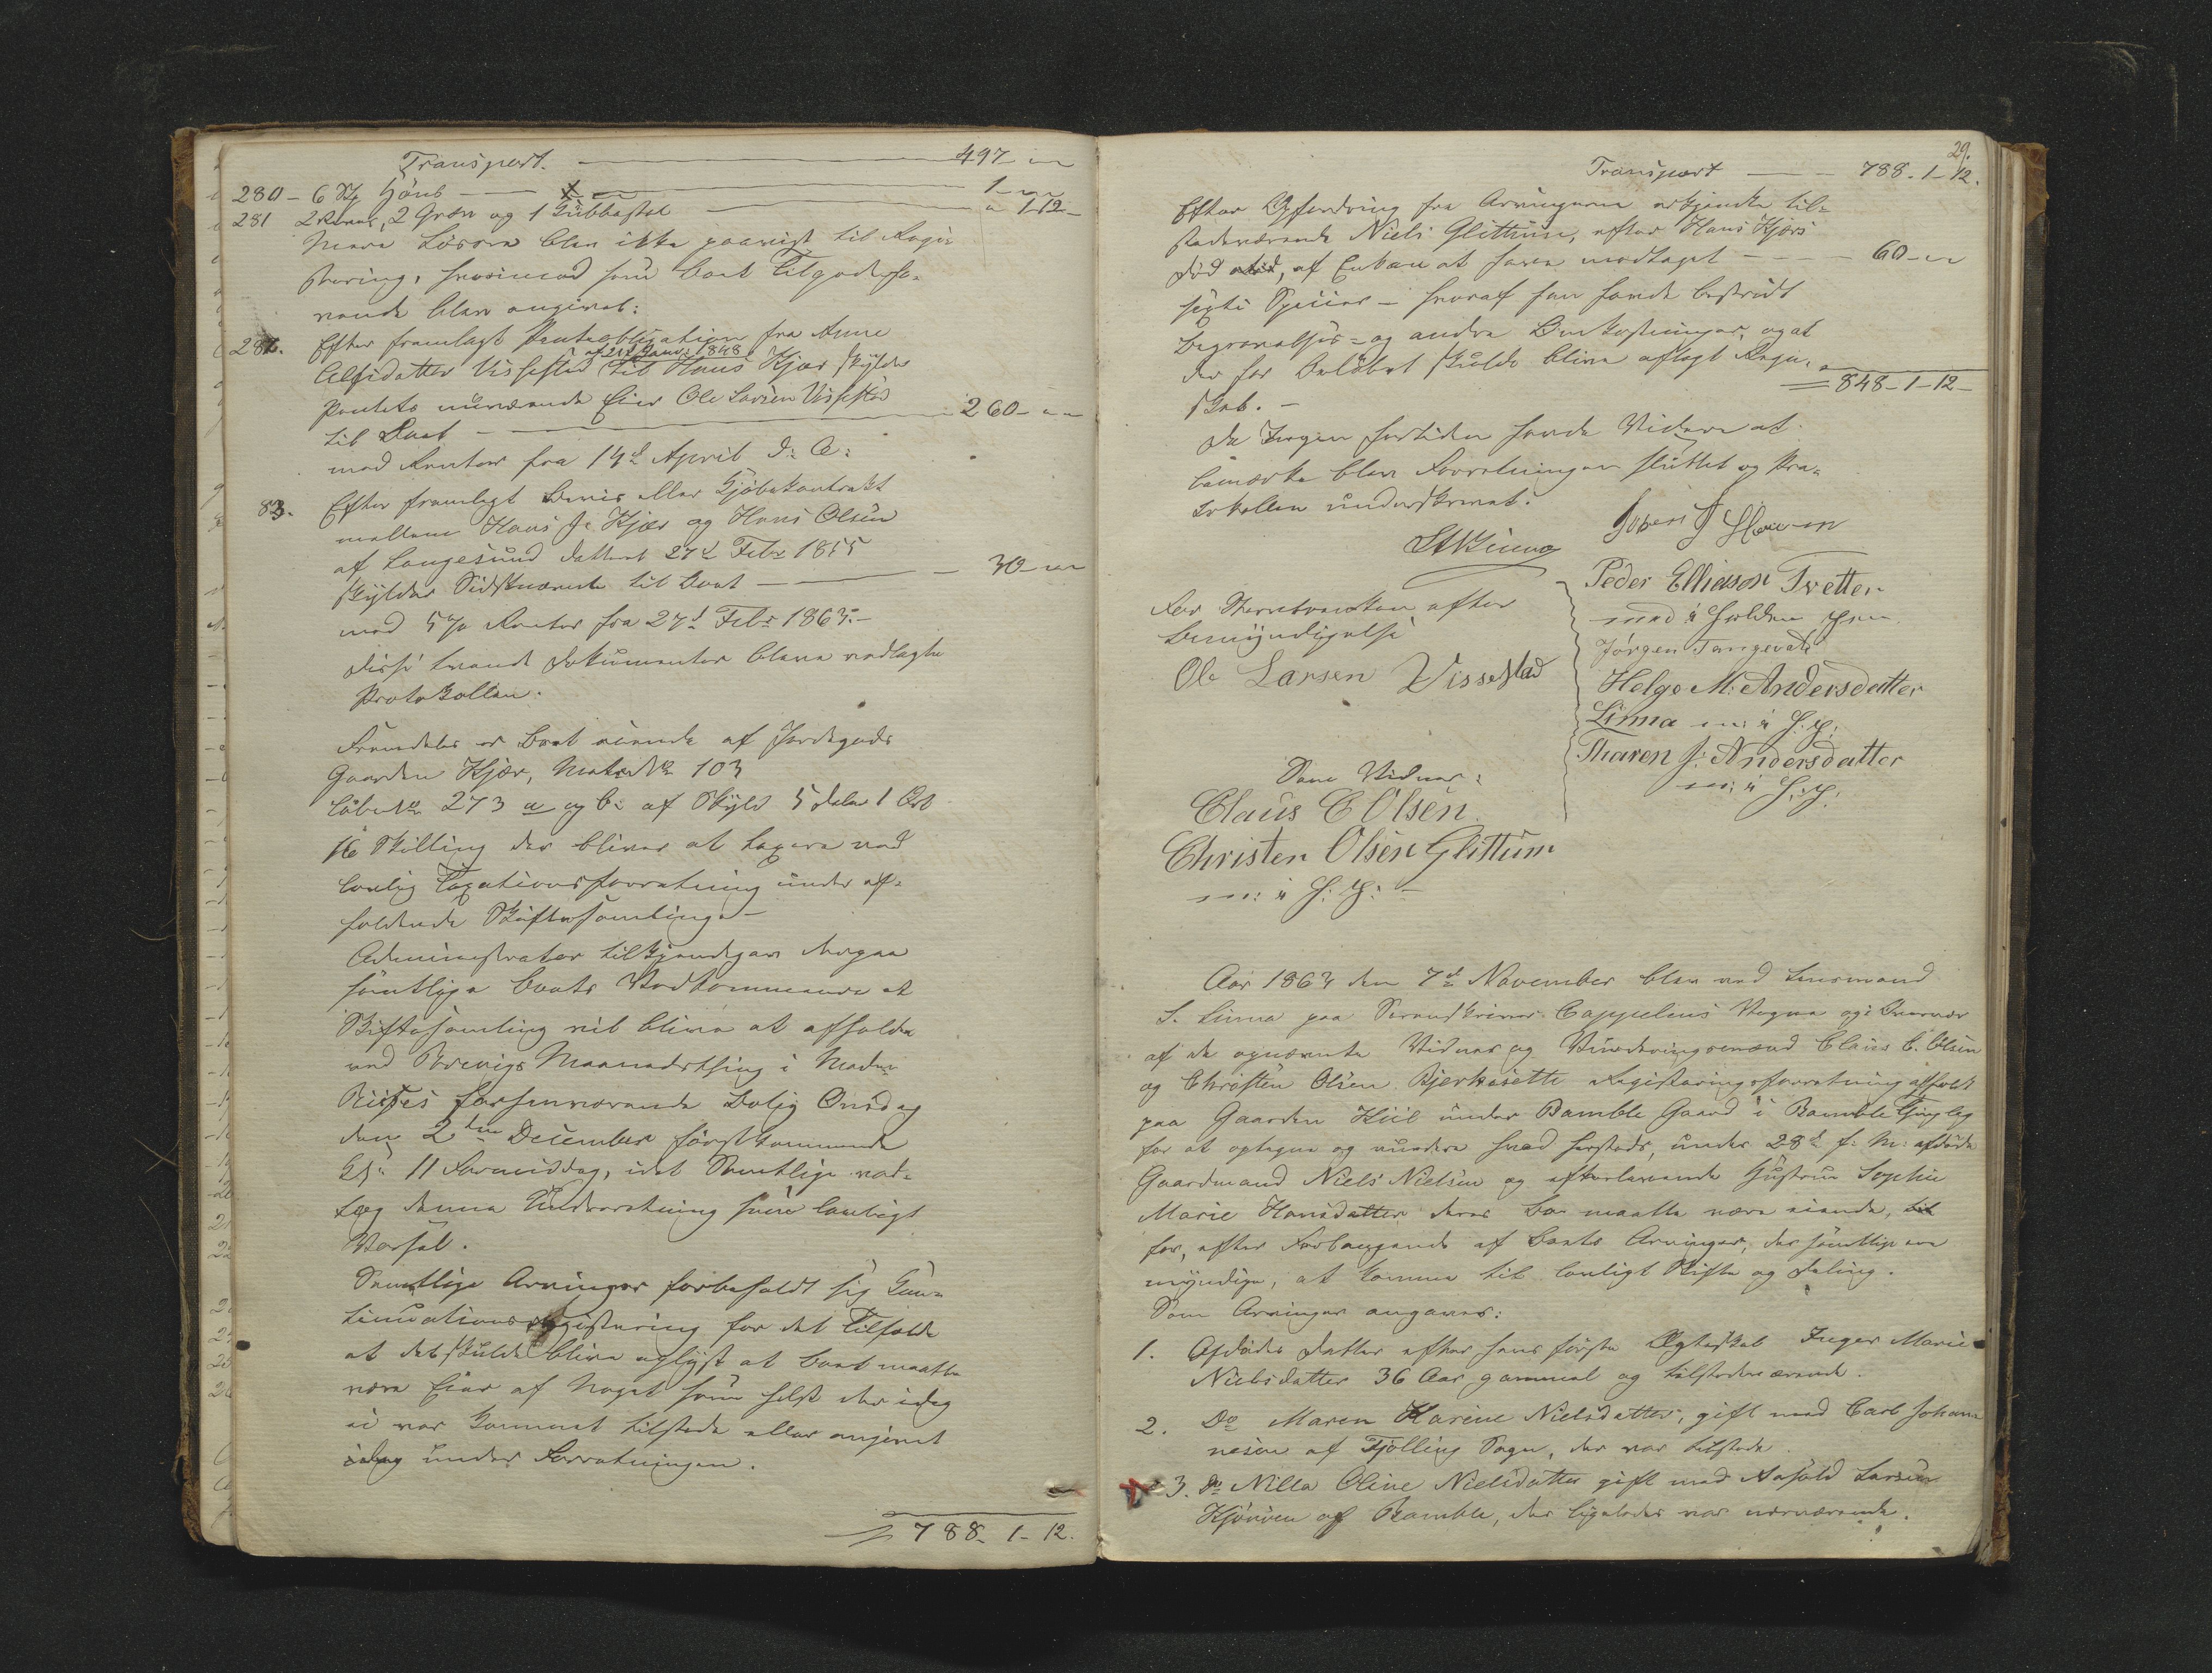 Transport. 497 " "
280 - 6 Stk Höns 1 - " "
281 2 River, 2 Grev og 1 Gubbestol " 1-12-
Mere Løsøre blev ikke paaviist til Regi-
strering, hvorimod som Boet tilgodeha-
vende blev angivet:
282. Efter fremlagt Panteobligation fra Anne
af 21d Januar 1848
Alfsdatter Vissestad til Hans Kjær skylder
Pantets nuværende Eier Ole Larsen Vissestad
til Boet 260 - " "
med Renter fra 14d April d: A:
83. Efter fremlagt Beviis eller Kjøbekontrakt
mellem Hans J. Kjær og Hans Olsen
af Langesund datteret 27d Febr 1855
skylder Sidstnævnte til Boet 30 - " "
med 5 % Renter fra 27d Febr 1863.-
Disse tvende Dokumenter bleve vedlagte
Protokollen.
Fremdeles er Boet eiende af Jordegods
Gaarden Kjær, Matr. No 103
Løbe No 273 a og b: af Skyld 5 Daler 1 Ort
16 Skilling der bliver at taxere ved
lovlig Taxationsforretning under af-
holdende Skiftesamlinge -
Administrator tilkjendegav derpaa
samtlige Boets Vedkommende at
Skiftesamling vil blive at afholde
ved Brevigs Maanedsthing i Madm
Riises forhenværende Bolig Onsdag
den 2den December førstkommende
Kl: 11 Formiddag, idet Samtlige ved-
tog denne Underretning som lovligt
Varsel.
Samtlige Arvinger forbeholdt sig Con-
tinuationsregistrering for det Tilfælde
at det skulde blive oplyst at Boet maatte
være Eier af Noget som helst der idag
ei var kommet tilstede eller angivet
idag under Forretningen.
788 - 1 - 12.
29.
Transport 788 - 1 - 12.
Efter Opfordring fra Arvingerne erkjendte til-
stedeværende Niels Glittum, efter Hans Kjærs
Død, af Enken at have modtaget 60 - " "
sexti Specier - hvoraf han havde bestridt
Begravelses- og andre Omkostninger, og at
der for Beløbet skulde blive aflagt Regn-
skab. -
848 - 1 - 12 -
Da Ingen fortiden havde Videre at
bemærke blev Forretningen sluttet og Pro-
tokollen underskrevet.
Peder Elliason Tvetten
med i holden Pen
Jørgen Tangevald
Helge M. Andersdatter
Linna m: i h: P:
Maren J: Andersdatter
m: i h: P:
efter
Bemyndigelse
Ole Larsen Vissestad
Som Vidner:
Claus C Olsen
Christen Olsen Glittum
m: i h: P: -
Aar 1863 den 7d November blev ved Lensmand
S. Linna paa Sorenskriver Cappelens Vegne og i Overvær
af de opnævnte Vidner og Vurderingsmænd Claus C. Olsen
og Christen Olsen Bjerkesette Registreringsforretning afholdt
paa Gaarden Kiil under Bamble Gaard i Bamble Thinglag
for at optegne og vurdere hvad hersteds, under 28d f: M: afdøde
Gaardmand Niels Nielsen og efterlevende Hustrue Sophie
Marie Hansdatter deres Bo maatte være eiende, 
for, efter Forlangende af Boets Arvinger, der samtlige ere
myndige, at komme til lovligt Skifte og Deling.
Som Arvinger angaves:
1. Afdødes Datter efter hans første Ægteskab Inger Marie
Nielsdatter 36 Aar gammel og tilstedeværende.
2. Do Maren Karine Nielsdatter, gift med Carl Johan-
nesen af Tjølling Sogn, der var tilstede.
3. Do Nille Oline Nielsdatter gift med Aasold Larsen
Kjønøen af Bamble, der ligeledes var nærværende.